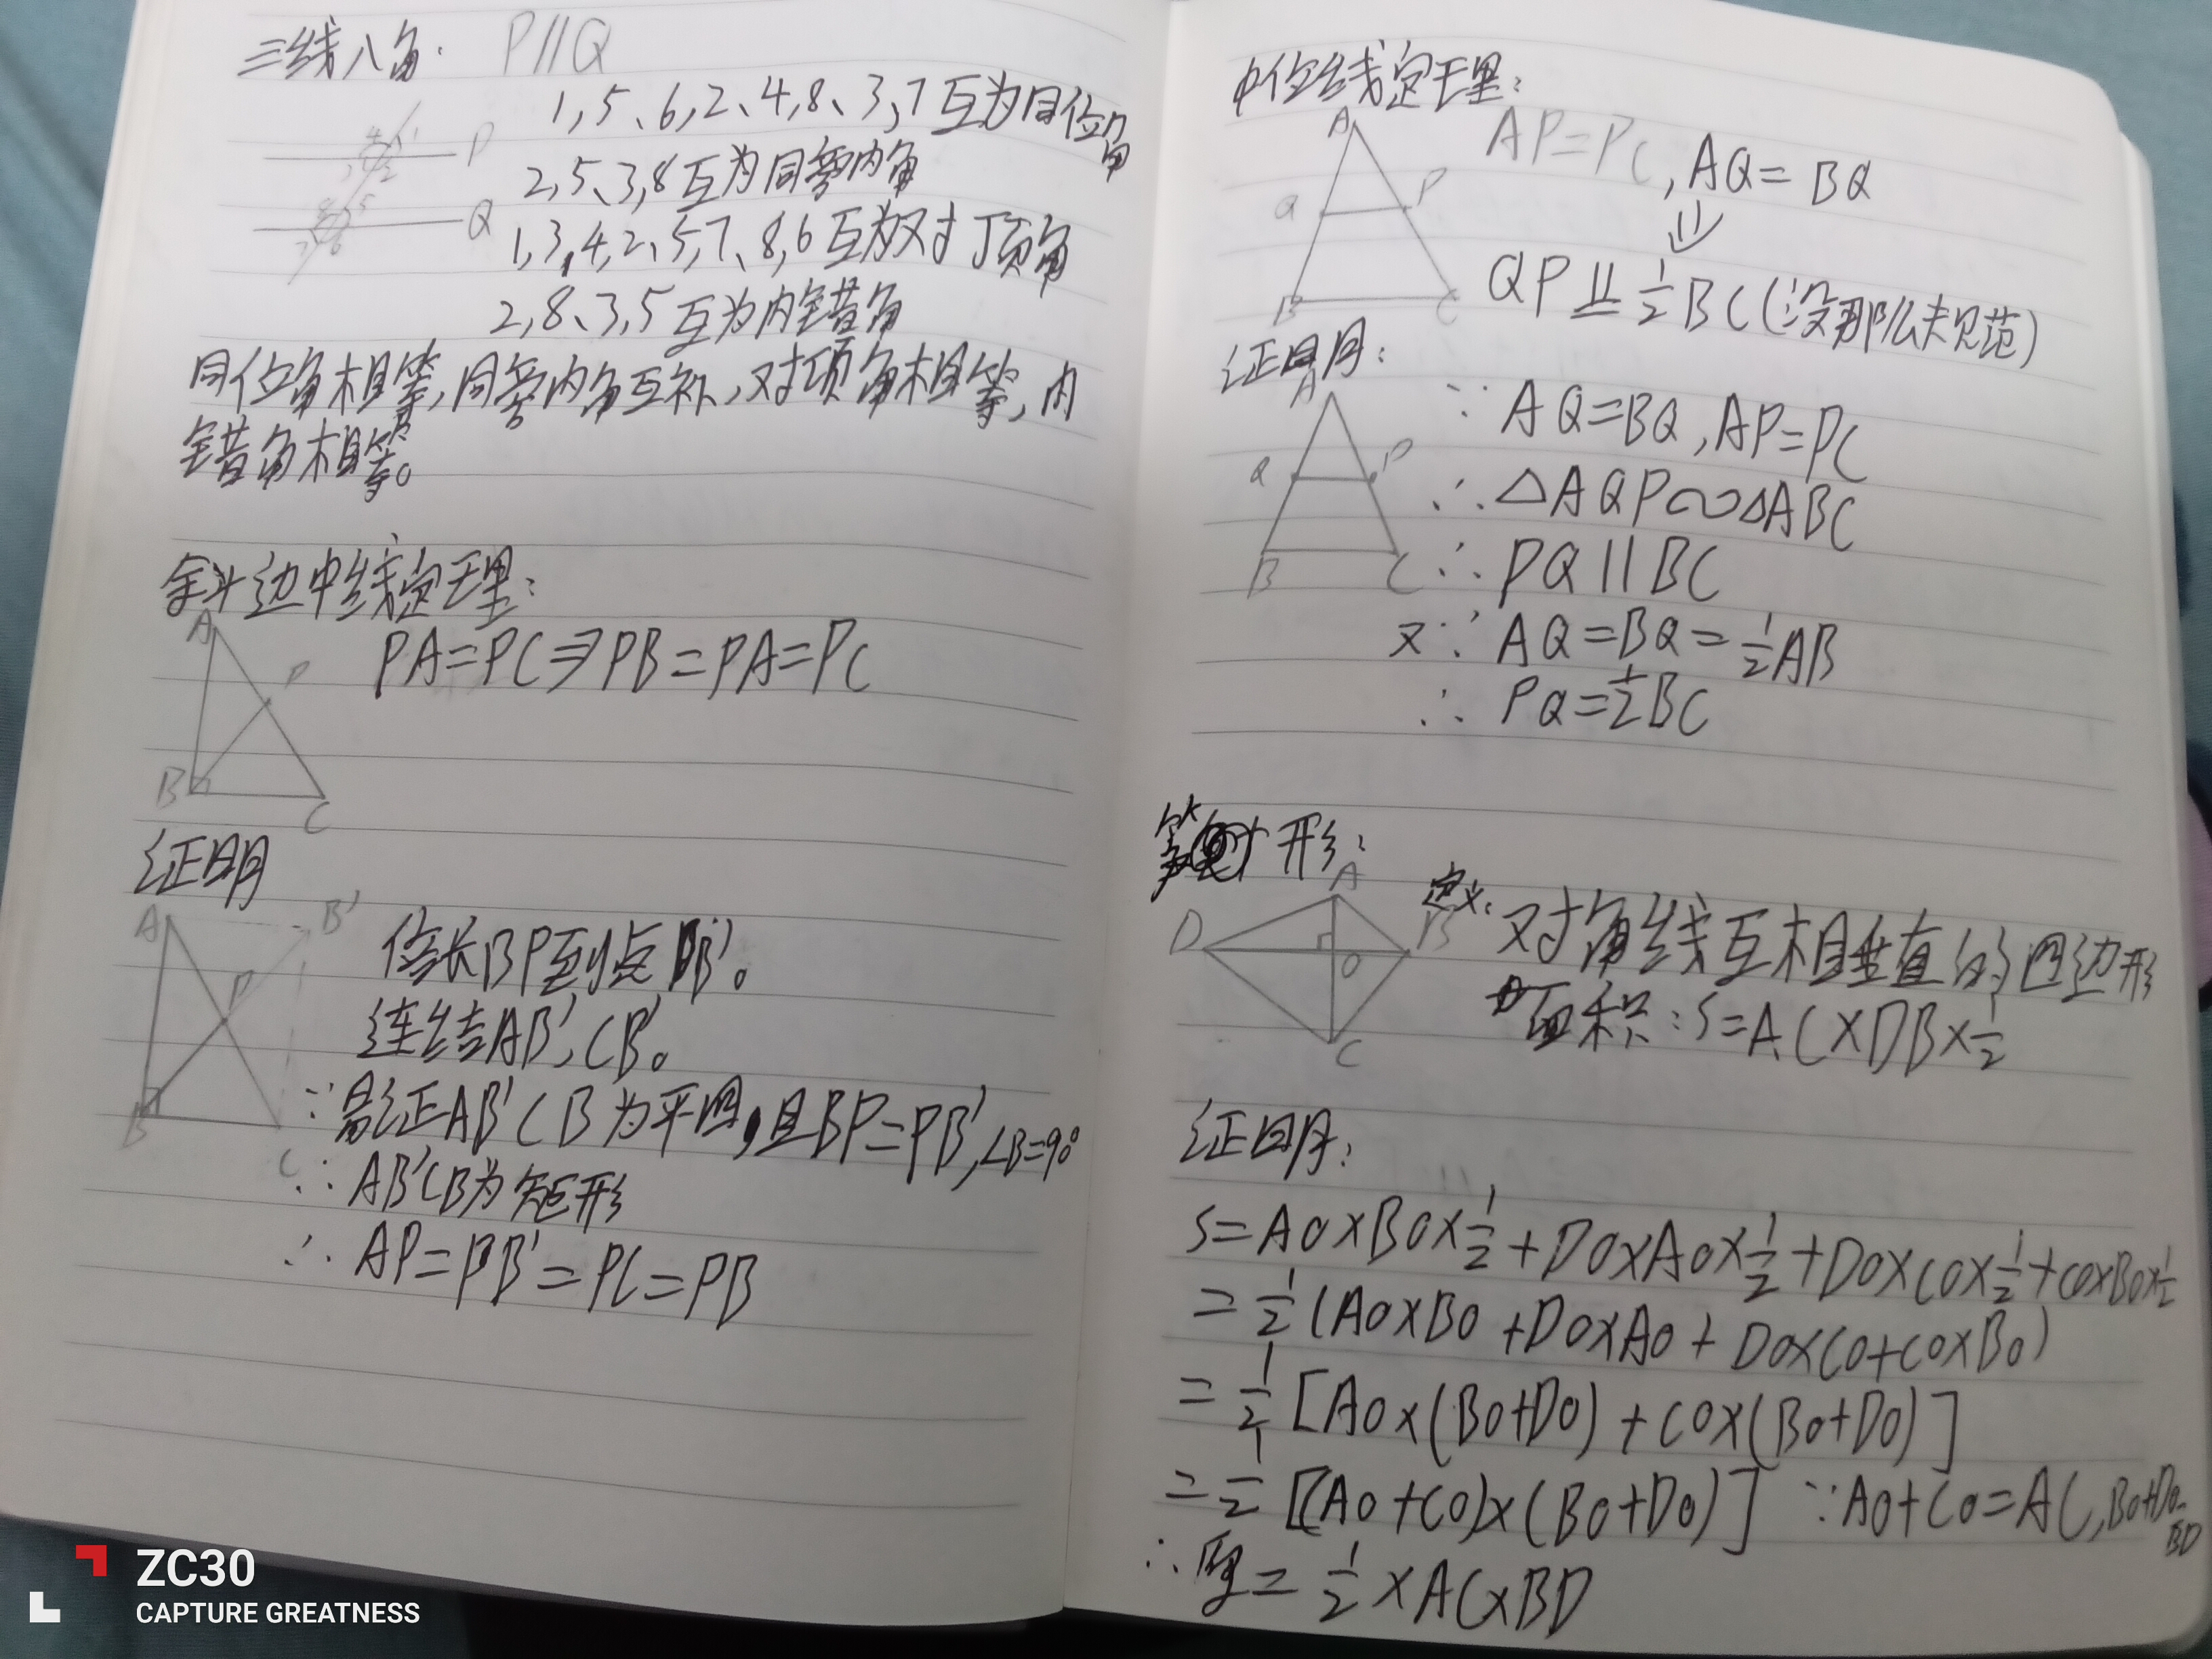 三线八角: P//Q
1,5、6,2、4,8、3,7互为同位角
2,5、3,8互为同旁内角
1,3、4,2、5,7、8,6互为对顶角
2,8、3,5互为内错角
P
Q
同位角相等,同旁内角互补,对顶角相等,内
错角相等。
斜边中线定理:
PA=PC⇒PB=PA=PC
A
P
B
C
证明
A
B'
P
B
C
倍长BP到点B'。
连结AB',CB'。
∵易证AB'CB为平四,且BP=PB',∠B=90°
∴AB'CB为矩形
∴AP=PB'=PC=PB
中位线定理:
AP=PC,AQ=BQ
⇓
QP ∥= 1/2 BC(没那么规范)
A
Q
P
B
C
证明:
∵ AQ=BQ,AP=PC
∴ △AQP∽△ABC
∴ PQ//BC
又∵ AQ=BQ=1/2AB
∴ PQ=1/2BC
A
Q
P
B
C
筝形:
定义:对角线互相垂直的四边形
面积:S=AC×DB×1/2
A
D
B
O
C
证明:
S=AO×BO×1/2+DO×AO×1/2+DO×CO×1/2+CO×BO×1/2
=1/2(AO×BO+DO×AO+DO×CO+CO×BO)
=1/2[AO×(BO+DO)+CO×(BO+DO)]
=1/2[(AO+CO)×(BO+DO)] ∵AO+CO=AC,BO+DO=BD
∴原=1/2×AC×BD
ZC30
CAPTURE GREATNESS